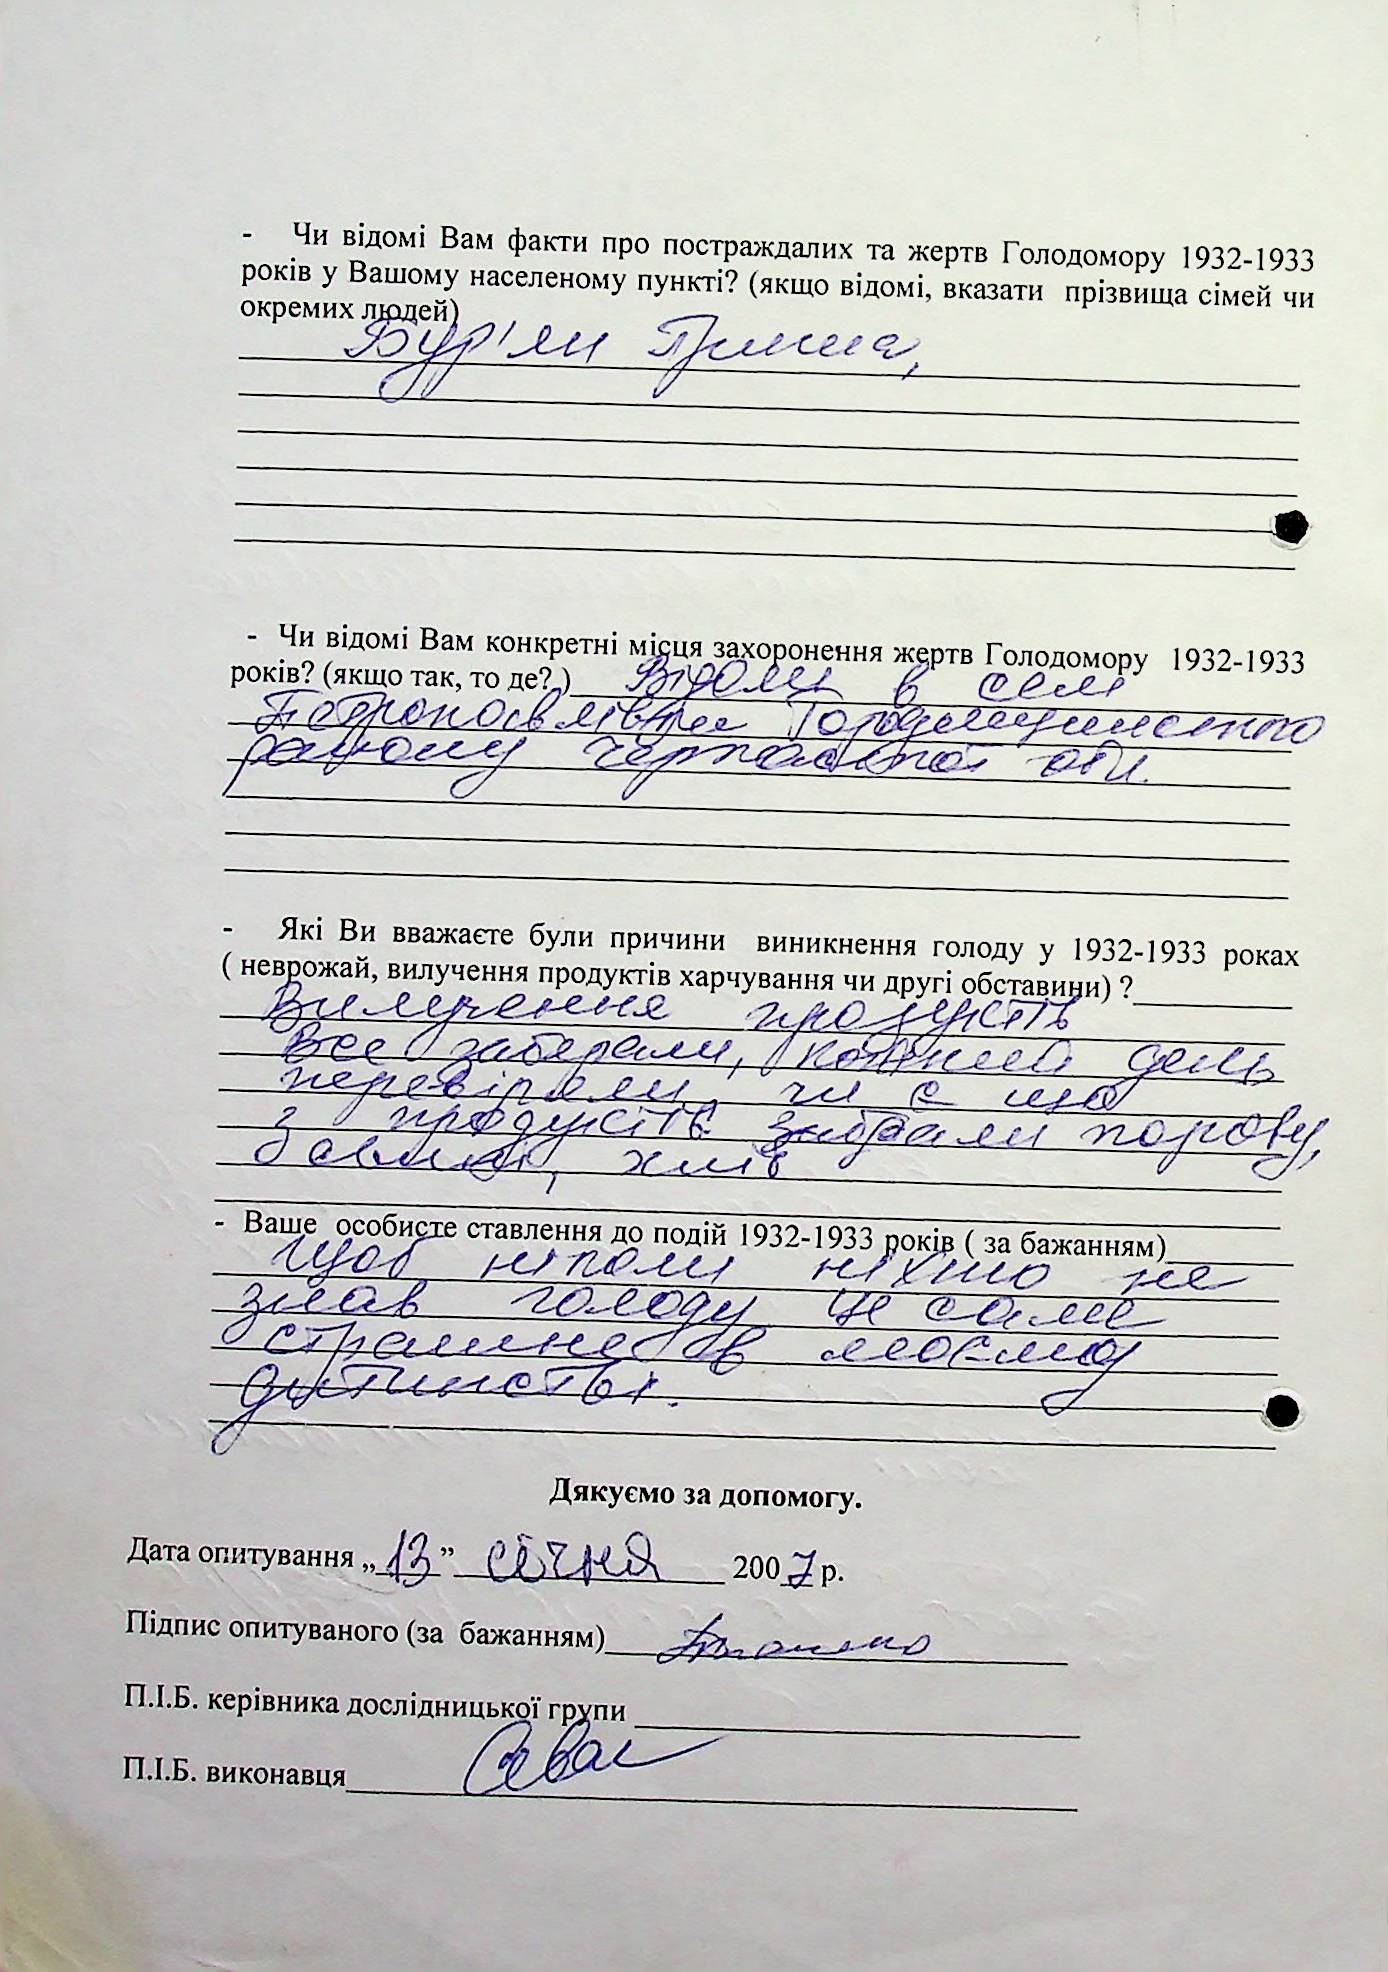 - Чи відомі Вам факти про постраждалих та жертв Голодомору 1932-1933
років у Вашому населеному пункті? (якщо відомі, вказати прізвища сімей чи
окремих людей)
Бур'ян
- Чи відомі Вам конкретні місця захоронення жертв Голодомору 1932-1933
років? (якщо так, то де? ) Відомі в селі
Петропавлівка Городищенського
району Черкаської обл.
- Які Ви вважаєте були причини виникнення голоду у 1932-1933 роках
( неврожай, вилучення продуктів харчування чи другі обставини) ?
Вилучення продуктів
Все заберали, кожний день
перевіряли чи є що
з продуктів. Забрали корову,
хлів
- Ваше особисте ставлення до подій 1932-1933 років ( за бажанням)
Щоб ніколи ніхто не
знав голоду це саме
страшне в моєму
дитинстві.
Дякуємо за допомогу.
Дата опитування „13” січня 2007 р.
Підпис опитуваного (за бажанням)
П.І.Б. керівника дослідницької групи
П.І.Б. виконавця